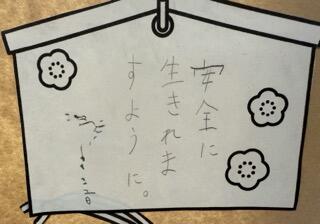 安全に
生きれま
すように。